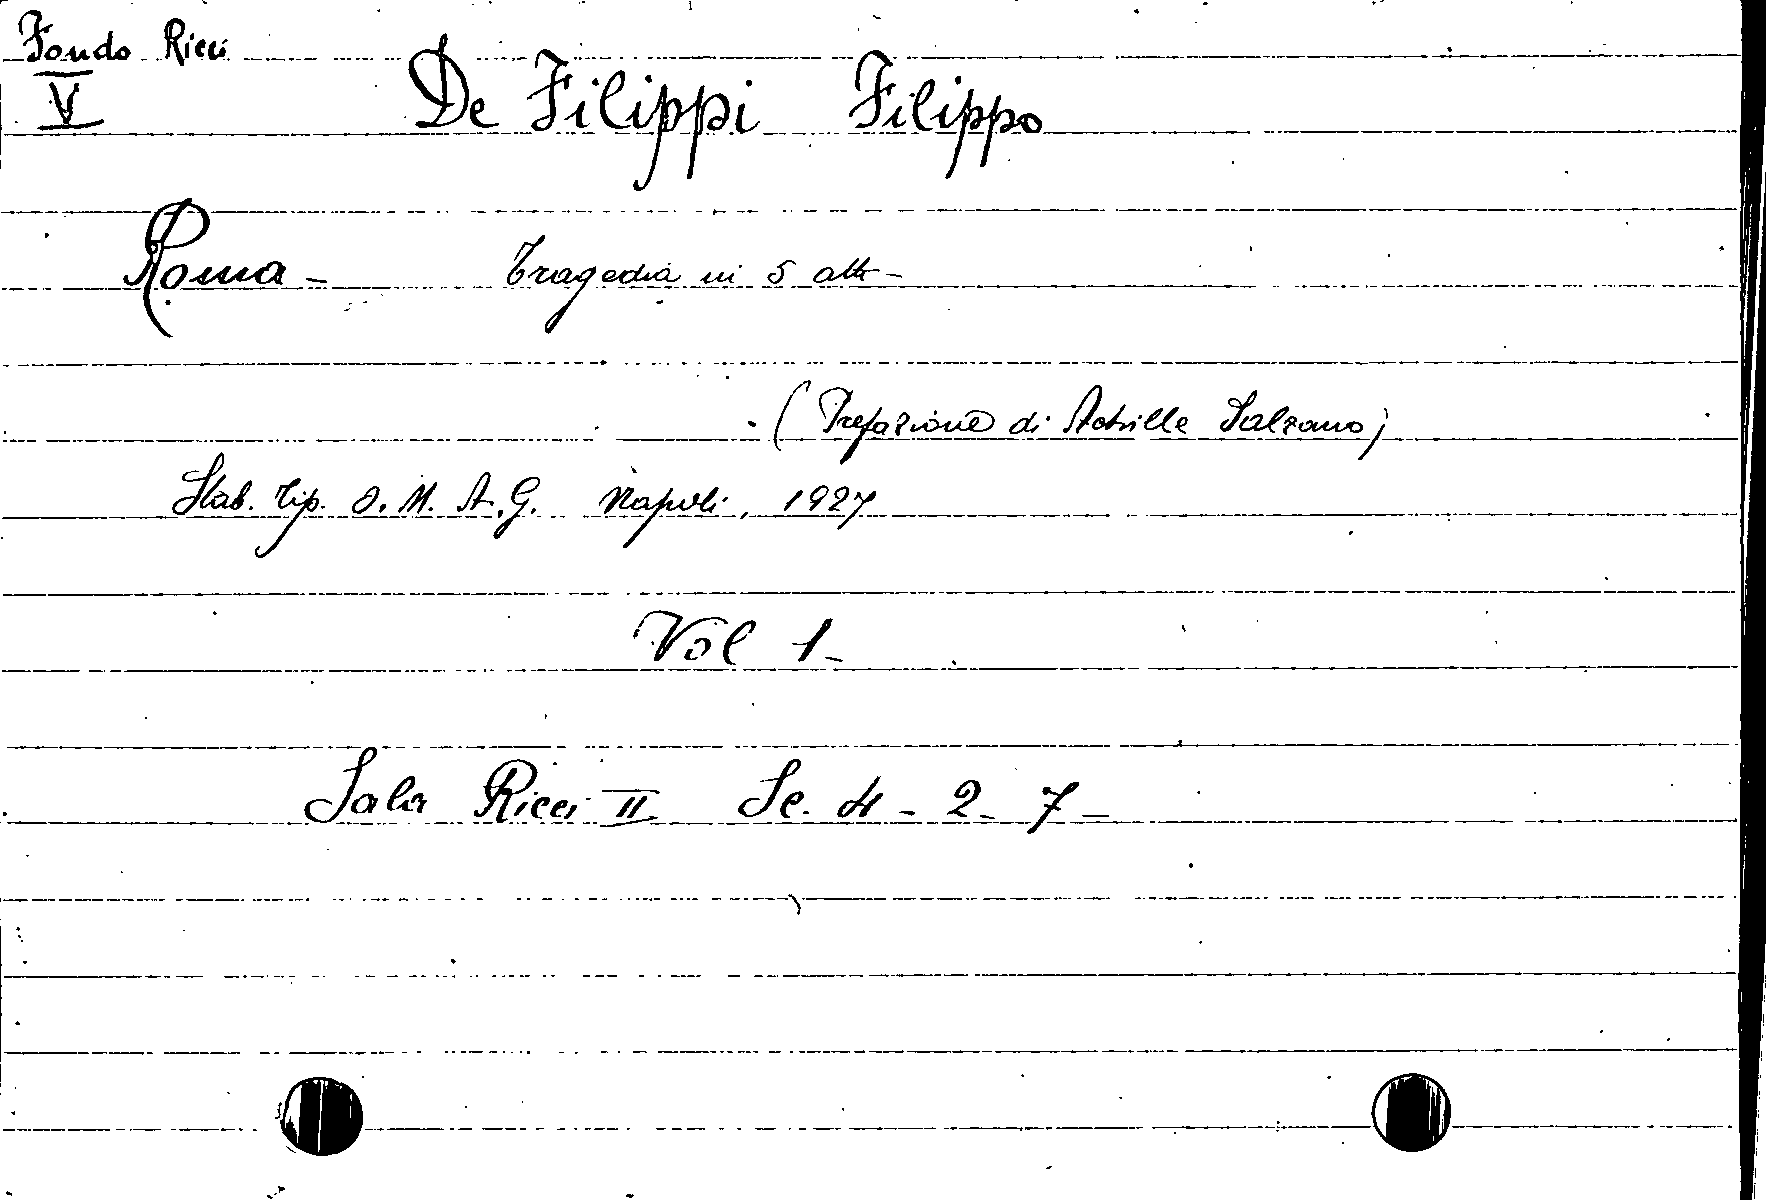 Fondo Ricci
V
De Filippi Filippo
Roma - Tragedia in 5 atti -
(Prefazione di Achille Salzano)
Stab. Tip. S. M. A. G. Napoli, 1927
Vol 1-
Sala Ricci II Sc. 4 - 2 - 7 -